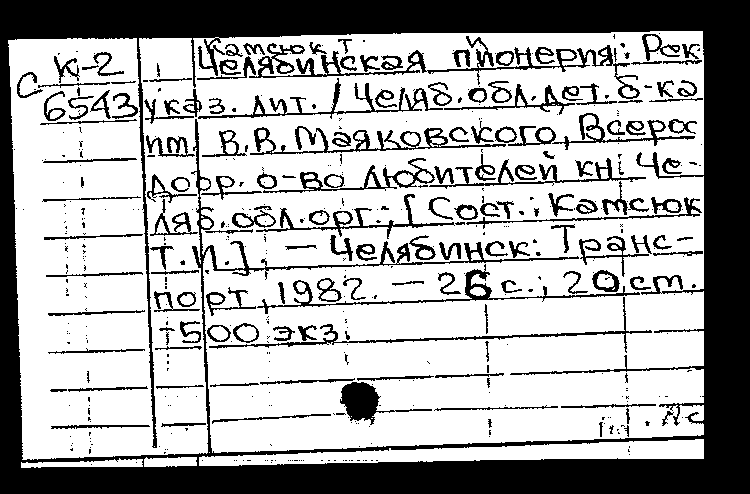 Катсюк Т. И
К-2 Челябинская пионерия: Рек
С 6543 указ. лит. / Челяб. обл. дет. б-ка
им. В.В. Маяковского, Всерос
добр. о-во любителей кн. Че-
ляб. обл. орг.; [Сост.: Катсюк
Т.И.]. — Челябинск: Транс-
порт, 1982. — 26 с.; 20 см.
500 экз.